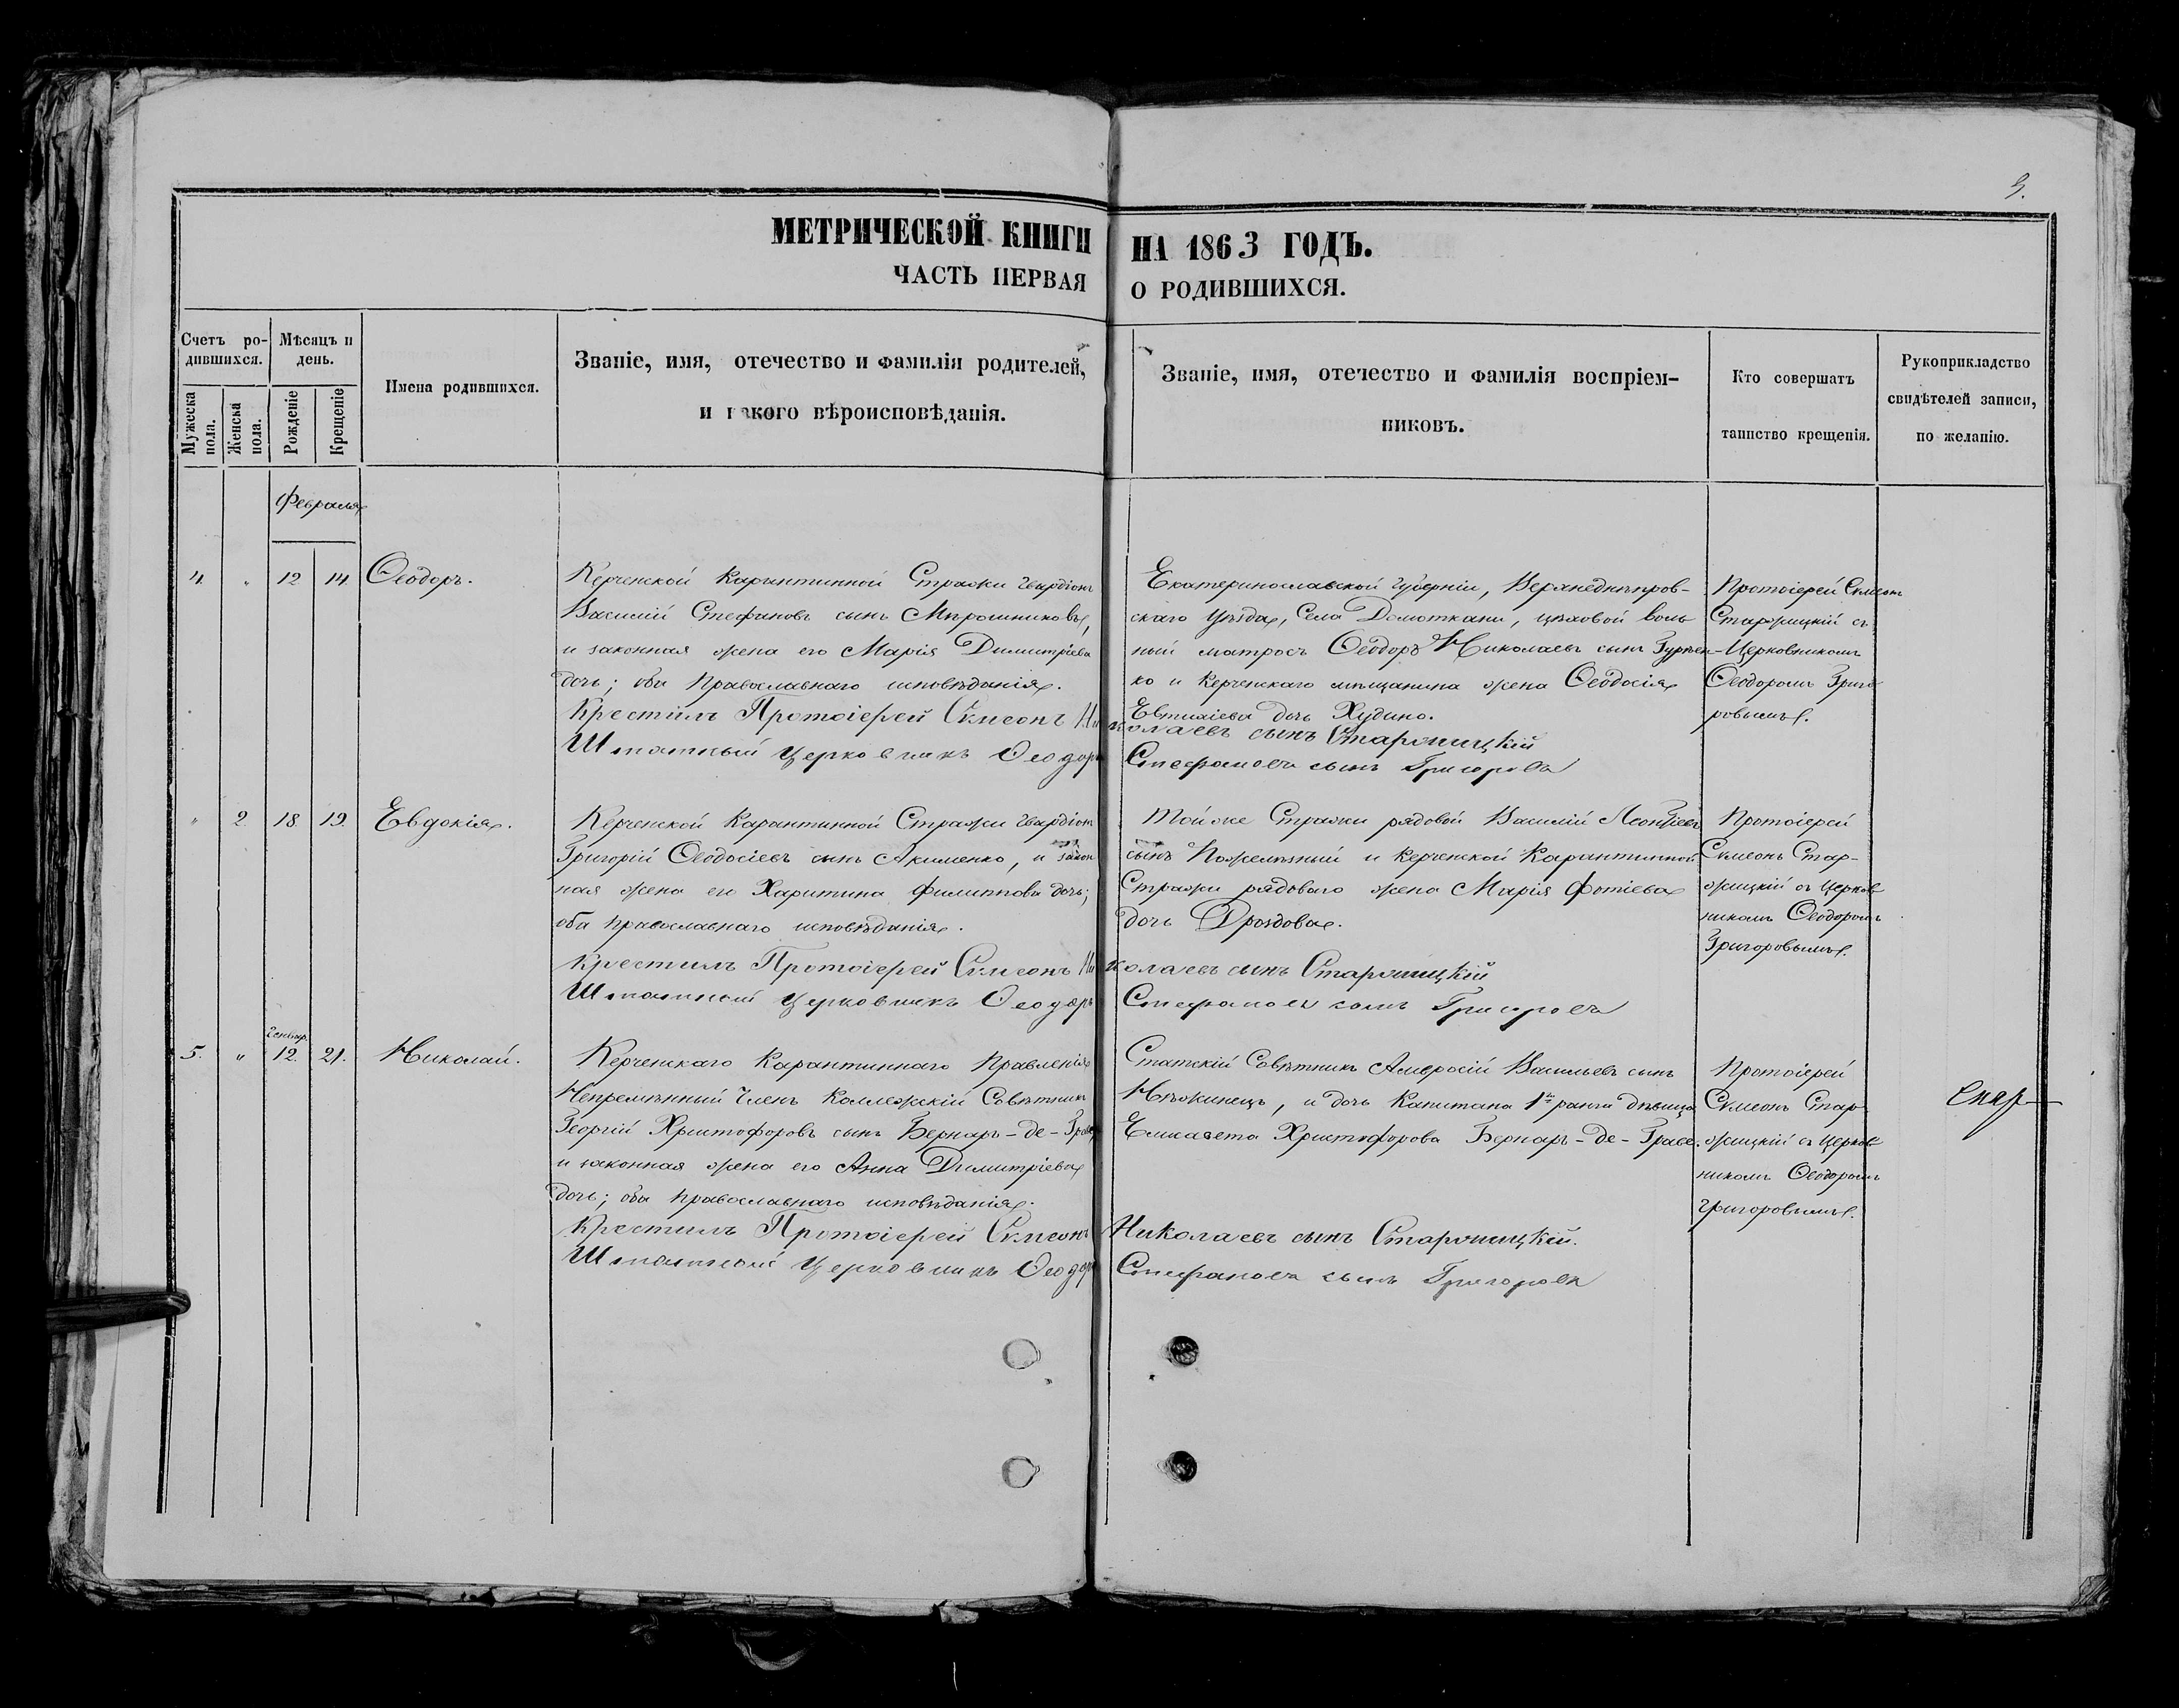 3.
МЕТРИЧЕСКОЙ КНИГИ НА 1863 ГОДЪ.
ЧАСТЬ ПЕРВАЯ О РОДИВШИХСЯ.
Счетъ ро-
дившихся.
Мужеска пола.
Женска пола.
Мѣсяцъ и
день.
Рожденіе
Крещеніе
Имена родившихся.
Званіе, имя, отечество и фамилія родителей,
и какого вѣроисповѣданія.
Званіе, имя, отечество и фамилія воспріем-
никовъ.
Кто совершатъ
таинство крещенія.
Рукоприкладство
свидѣтелей записи,
по желанію.
Февраля
4. " 12 14. Ѳеодоръ.
Керченской Карантинной Стражи гвардіонъ
Василій Стефановъ сынъ Мирошниковъ,
и законная жена его Марія Димитріева
дочь; оба Православнаго исповѣданія.
Екатеринославской губерніи, Верхнеднѣпров-
скаго уѣзда, Села Домоткани, цѣховой воль
ный матросъ Ѳеодоръ Николаевъ сынъ Гурѣен-
ко и Керченскаго мѣщанина жена Ѳеодосія
Евтихіева дочь Худино.
Протоіерей Сѵмеонъ
Старжицкій съ
Церковникомъ
Ѳеодоромъ Григо
ровымъ.
Крестилъ Протоіерей Сѵмеонъ Николаевъ сынъ Старжицкій
Штатный Церковникъ Ѳеодоръ Стефановъ сынъ Григоровъ
" 2 18. 19. Евдокія.
Керченской Карантинной Стражи гвардіонъ
Григорій Ѳеодосіевъ сынъ Акименко, и закон
ная жена его Харитина Филиппова дочь;
оба православнаго исповѣданія.
Той же Стражи рядовой Василій Леонтіевъ
сынъ Пожелѣзный и Керченской Карантинной
Стражи рядоваго жена Марія Фотіева
дочь Дроздова.
Протоіерей
Сѵмеонъ Стар-
жицкій съ Церков
никомъ Ѳеодоромъ
Григоровымъ.
Крестилъ Протоіерей Сѵмеонъ Николаевъ сынъ Старжицкій
Штатный Церковникъ Ѳеодоръ Стефановъ сынъ Григоровъ
Генвар.
5. " 12. 21. Николай.
Керченскаго Карантиннаго Правленія
Непремѣнный Членъ Коллежскій Совѣтникъ
Георгій Христофоровъ сынъ Бернаръ-де-Граве
и законная жена его Анна Димитріева
дочь; оба православнаго исповѣданія.
Статскій Совѣтникъ Амвросій Васильевъ сынъ
Нѣжинецъ, и дочь Капитана 1го ранга дѣвица
Елисавета Христофорова Бернаръ-де-Граве.
Протоіерей
Сѵмеонъ Стар
жицкій съ Церков
никомъ Ѳеодоромъ
Григоровымъ.
Крестилъ Протоіерей Сѵмеонъ Николаевъ сынъ Старжицкій.
Штатный Церковникъ Ѳеодоръ Стефановъ сынъ Григоровъ